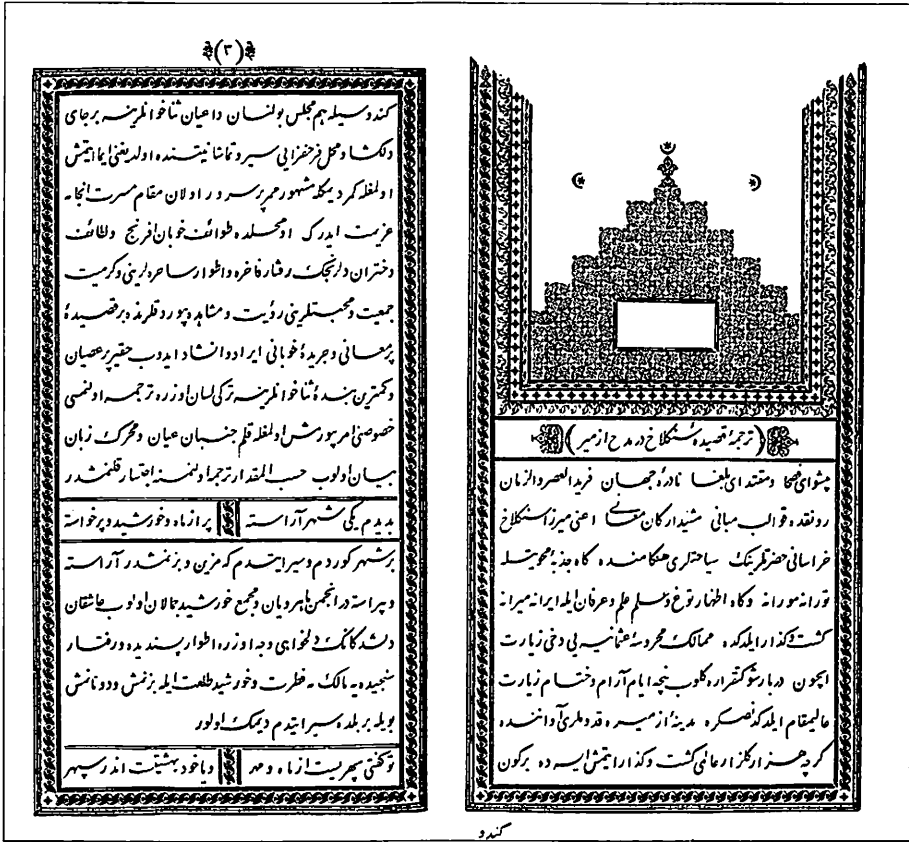 (ترجمهٔ قصیدهٔ سنكلاخ در مدح ازمیر)
پیشوای فصحا و مقتدای بلغا نادرهٔ جهان فرید العصر والزمان
قوالب مبانی مشید اركان معانی اعنی میرزا سنكلاخ
خراسانی حضرتلرینك سیاحتلری هنكامنده كاه جذبهٔ محویتله
تورانه مورانه و كاه اظهار علم و عرفان ایله ایرانه میرانه
كشت و كذار ایلدكده ممالك محروسهٔ عثمانیه یی دخی زیارت
ایچون دربار شوكتقراره كلوب نیجه ایام آرام و ختام زیارت
عالیمقام ایلدكدنصكره مدینهٔ ازمیره قدوملری آواننده
كرچه هزار كلزار عالمی كشت و كذار ایتمش ایسه ده بركون
كندو
(٣)
كندوسیله هم مجلس بولنان داعیان ثناخوانلرینه بر جای
دلكشا و محل فرحفزایی سیر و تماشا نیتنده اولدیغنی ایما ایتمش
اولمغله كمر دیمكله مشهور ممر پر سرور اولان مقام مسرت انجامه
عزیمت ایدرك اومحلده طوائف خوبان افرنج و لطائف
دختران دلرنجك رفتار فاخره و اطوار ساحره لرینی و كرمیت
جمعیت و محبتلرینی رؤیت و مشاهده بیوردقلرنده بر قصیدهٔ
پر معانی و جریدهٔ خوبانی ایراد و انشاد ایدوب حقیر پر عصیان
و كمترین بندهٔ ثناخوانلرینه تركی لسان اوزره ترجمه اولنمسی
خصوصنی امر بیورمش اولمغله قلم جنبان عیان و محرك زبان
بیان اولوب حسب المقدار ترجمه اولنمسنه ابتدار قلنمشدر
بدیدم یكی شهر آراسته پر از ماه و خورشید و پرخواسته
بر شهر كوردم و سیر ایتدم كه مزین و بزنمشدر آراسته
و پیراسته در انجمن ماهرویان و مجمع خورشید جمالان اولوب عاشقان
دلشدكانك دلخواهی وجه اوزره اطوار پسندیده و رفتار
سنجیده یه مالك مه فطرت و خورشید طلعت ایله بزنمش و دونانمش
بویله بر بلده سیر ایتدم دیمك اولور
تو كفتی سپهریست از ماه و مهر و یا خود بهشیتت اندر سپهر